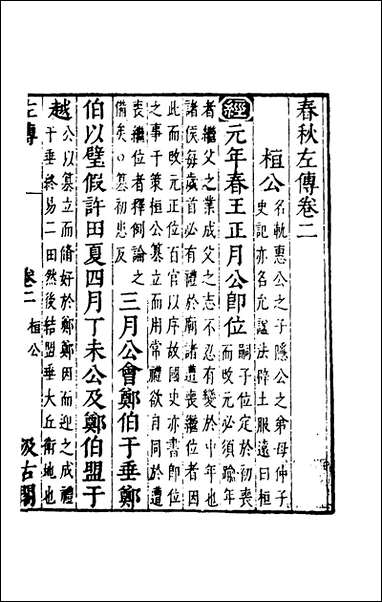 春秋左傳卷二
桓公
名軌惠公之子隱公之弟母仲子
史記亦名允謚法辟土服遠曰桓
經元年春王正月公即位
嗣子位定於初喪
而改元必須踰年
者繼父之業成父之志不忍有變於中年也
諸侯每歲首必有禮於廟諸遭喪繼位者因
此而改元正位百官以序故國史亦書即位
之事于策桓公篡立而用常禮欲自同於遭
喪繼位者釋例論之
備矣○篡初患反
三月公會鄭伯于垂鄭
伯以璧假許田夏四月丁未公及鄭伯盟于
越
公以篡立而脩好於鄭鄭因而迎之成禮
于垂終易二田然後結盟垂大丘衛地也
左傳 卷二 桓公 汲古閣